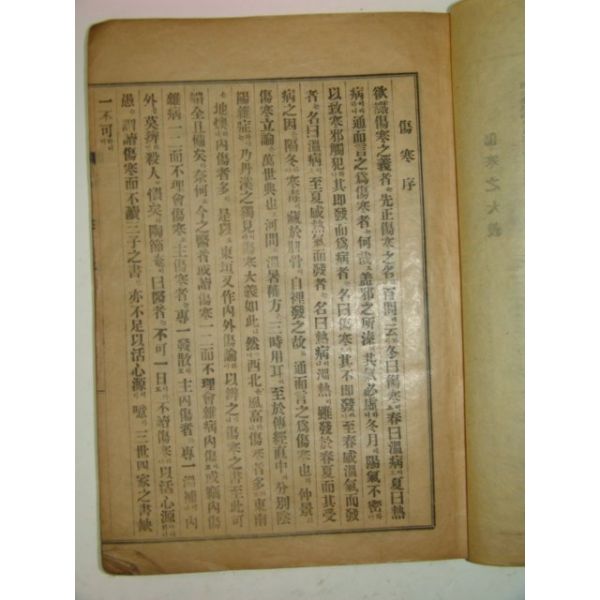 傷寒序
欲識傷寒之義者先正傷寒之名百問云冬曰傷寒春曰溫病夏曰熱
病通而言之爲傷寒者何哉盖邪之所湊其氣必虛冬月陽氣不密
以致寒邪觸犯其卽發而爲病者名曰傷寒其不卽發至春感溫氣而發
者名曰溫病至夏感熱氣而發者名曰熱病溫熱雖發於春夏而其受
病之因隔冬寒毒藏於骨自裡發之故通而言之爲傷寒也仲景
傷寒立論萬世典也河間溫暑方三時用耳至於傳經直中分別陰
陽雜症乃丹溪之獨見傷寒大義如此然西北風高傷寒者多東南
地內傷者多是以東垣又作內外傷論以辨之傷寒之書至此可
謂全且備矣奈何今之醫者或讀傷寒一二而不理會雜病內傷或竊內傷
雜病一二而不理會傷寒主傷寒者專一發散主內傷者專一溫補內
外莫辨殺人慣矣陶節菴曰醫者不可一日不讀傷寒以活心源
愚謂讀傷寒而不讀三子之書亦不足以活心源噫三世四家之書缺
一不可
傷寒之大義